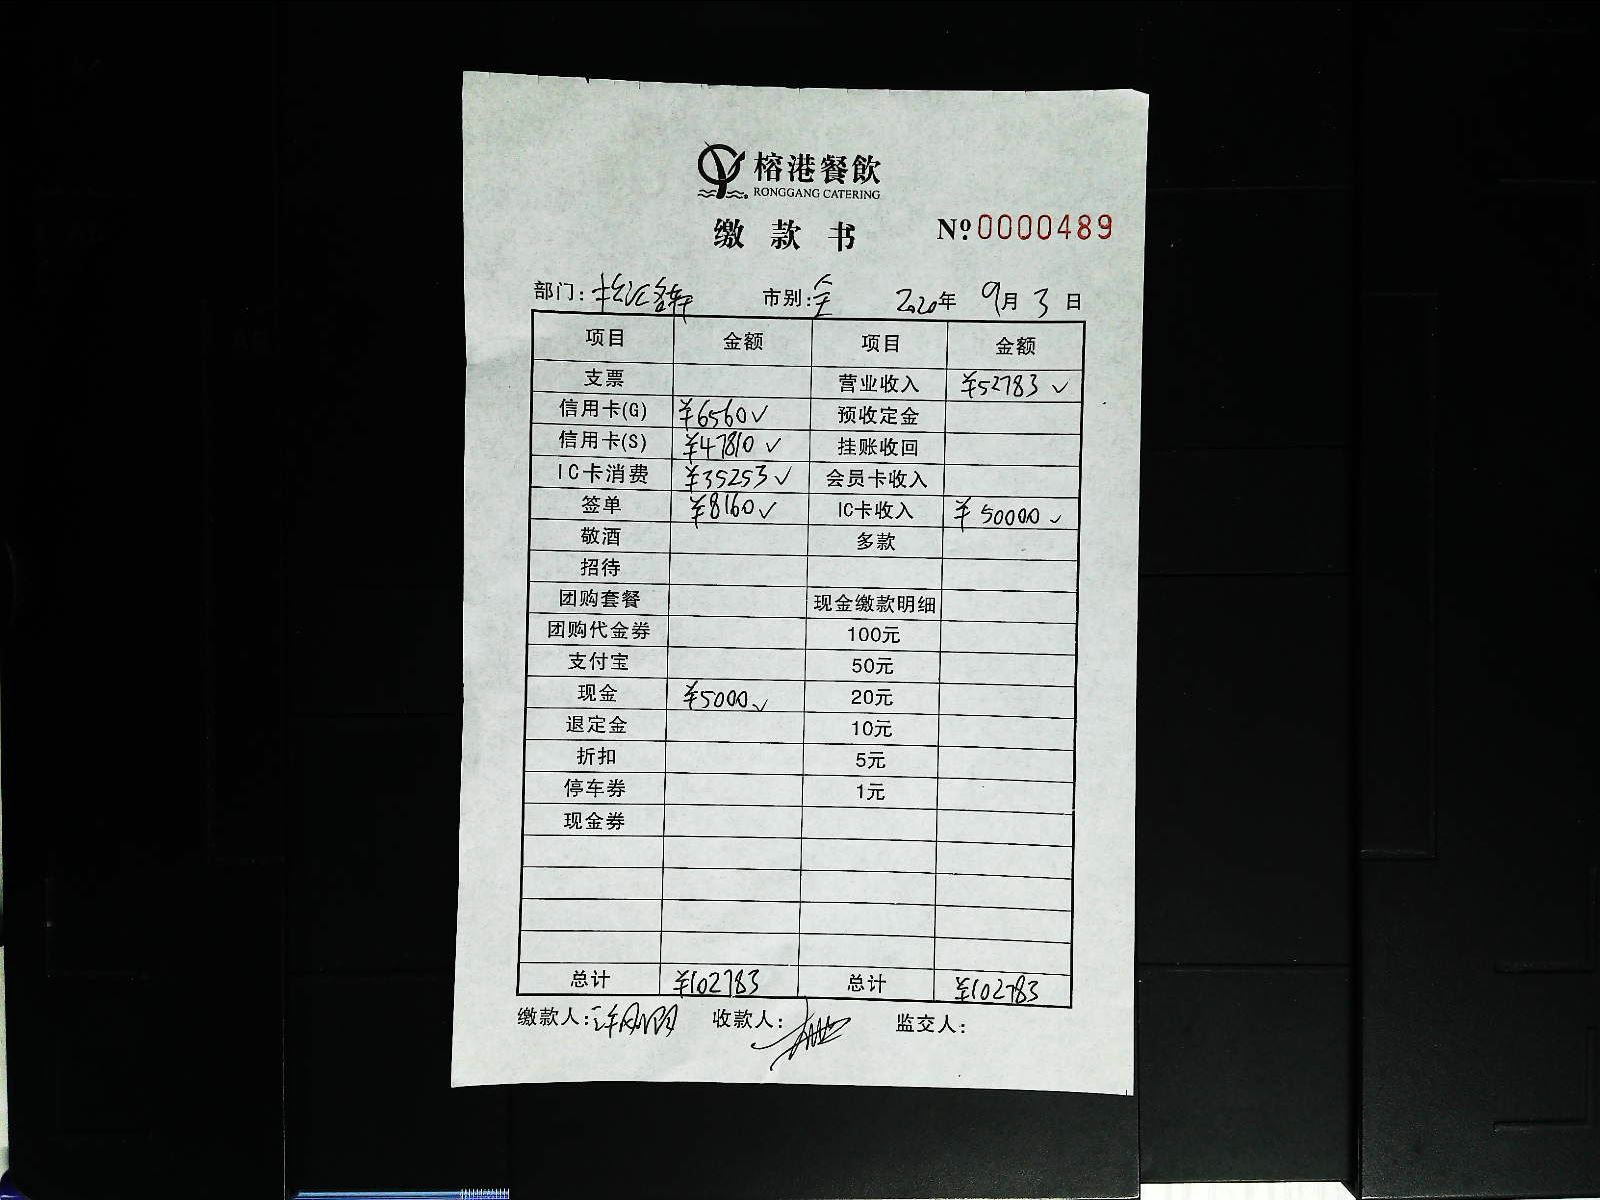 榕港餐飲
RONGGANG CATERING
缴款书 Nº 0000489
部门: 市别:全 2020年 9月 3日
项目 金额 项目 金额
支票 营业收入 ¥52783 ✓
信用卡(G) ¥6560 ✓ 预收定金
信用卡(S) ¥47810 ✓ 挂账收回
IC卡消费 ¥35253 ✓ 会员卡收入
签单 ¥8160 ✓ IC卡收入 ¥50000 ✓
敬酒 多款
招待
团购套餐 现金缴款明细
团购代金券 100元
支付宝 50元
现金 ¥5000 ✓ 20元
退定金 10元
折扣 5元
停车券 1元
现金券
总计 ¥102783 总计 ¥102783
缴款人: 收款人: 监交人: